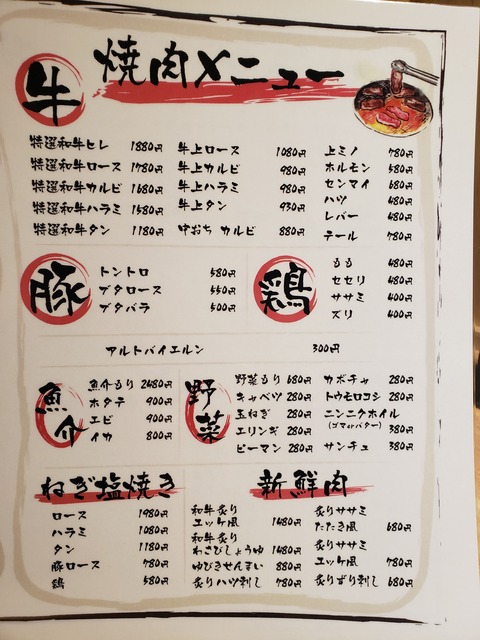 焼肉メニュー
牛
特選和牛ヒレ 1880円
特選和牛ロース 1780円
特選和牛カルビ 1680円
特選和牛ハラミ 1580円
特選和牛タン 1180円
牛上ロース 1080円
牛上カルビ 980円
牛上ハラミ 980円
牛上タン 930円
中おち カルビ 880円
上ミノ 780円
ホルモン 580円
センマイ 680円
ハツ 480円
レバー 480円
テール 780円
豚
トントロ 580円
ブタロース 550円
ブタバラ 500円
鶏
もも 480円
セセリ 480円
ササミ 400円
ズリ 400円
アルトバイエルン 300円
魚介
魚介もり 2480円
ホタテ 900円
エビ 900円
イカ 800円
野菜
野菜もり 680円
キャベツ 280円
玉ねぎ 280円
エリンギ 280円
ピーマン 280円
カボチャ 280円
トウモロコシ 280円
ニンニクホイル
(ゴマorバター) 380円
サンチュ 380円
ねぎ塩焼き
ロース 1980円
ハラミ 1080円
タン 1180円
豚ロース 780円
鶏 580円
新鮮肉
和牛炙り
ユッケ風 1480円
和牛炙り
わさびしょうゆ 1480円
ゆびきせんまい 880円
炙りハツ刺し 780円
炙りササミ
たたき風 680円
炙りササミ
ユッケ風 780円
炙りずり刺し 680円